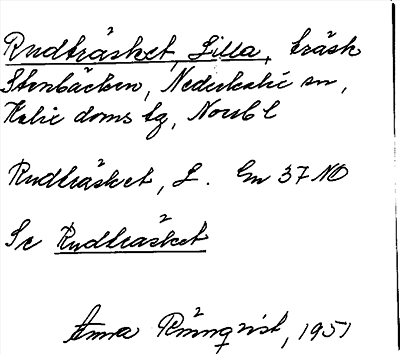 Rudträsket, Lilla, träsk
Stenbäcken, Nederkalix sn,
Kalix doms lg, Norrb l
Rudträsket, L. Gm 37 NO
Se Rudträsket
Anna Rönnqvist, 1951